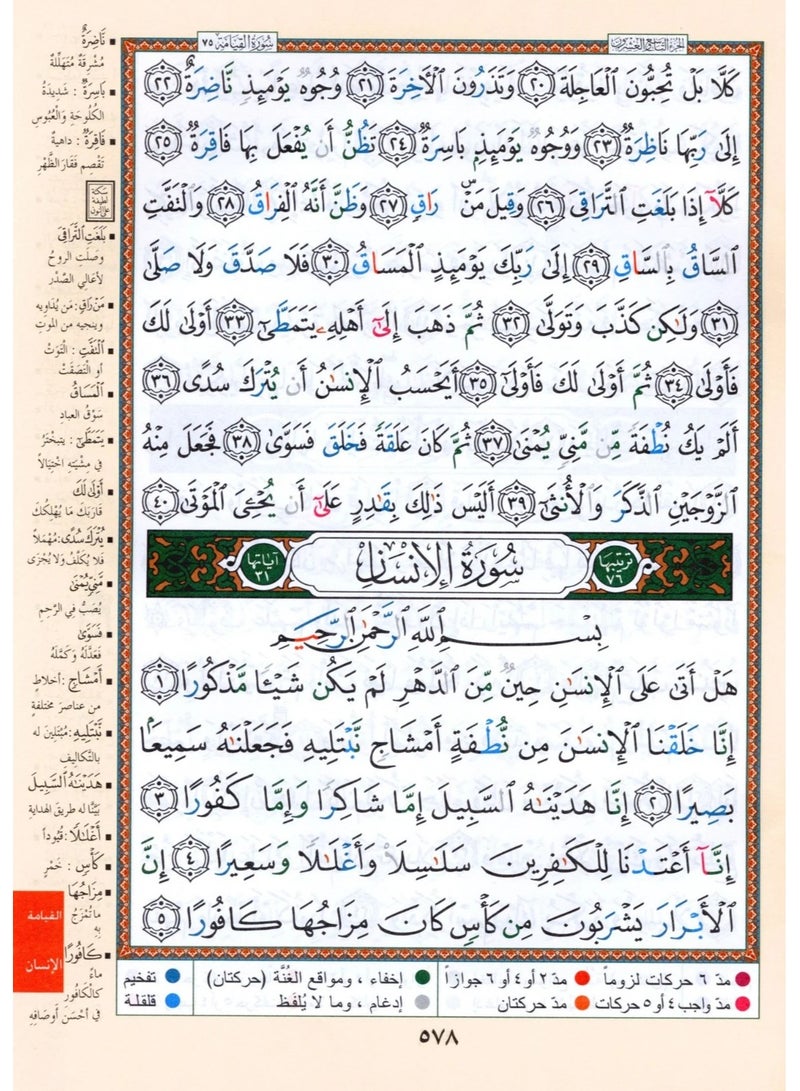 الجزء التاسع والعشرون
سورة القيامة ٧٥
كَلَّا بَلْ تُحِبُّونَ ٱلْعَاجِلَةَ ٢٠ وَتَذَرُونَ ٱلْأَخِرَةَ ٢١ وُجُوهٌ يَوْمَئِذٍ نَّاضِرَةٌ ٢٢
إِلَىٰ رَبِّهَا نَاظِرَةٌ ٢٣ وَوُجُوهٌ يَوْمَئِذٍۭ بَاسِرَةٌ ٢٤ تَظُنُّ أَن يُفْعَلَ بِهَا فَاقِرَةٌ ٢٥
كَلَّآ إِذَا بَلَغَتِ ٱلتَّرَاقِىَ ٢٦ وَقِيلَ مَنْ ۜ رَاقٍ ٢٧ وَظَنَّ أَنَّهُ ٱلْفِرَاقُ ٢٨ وَٱلْتَفَّتِ
ٱلسَّاقُ بِٱلسَّاقِ ٢٩ إِلَىٰ رَبِّكَ يَوْمَئِذٍ ٱلْمَسَاقُ ٣٠ فَلَا صَدَّقَ وَلَا صَلَّىٰ
٣١ وَلَٰكِن كَذَّبَ وَتَوَلَّىٰ ٣٢ ثُمَّ ذَهَبَ إِلَىٰٓ أَهْلِهِۦ يَتَمَطَّىٰٓ ٣٣ أَوْلَىٰ لَكَ
فَأَوْلَىٰ ٣٤ ثُمَّ أَوْلَىٰ لَكَ فَأَوْلَىٰٓ ٣٥ أَيَحْسَبُ ٱلْإِنسَٰنُ أَن يُتْرَكَ سُدًى ٣٦
أَلَمْ يَكُ نُطْفَةً مِّن مَّنِىٍّ يُمْنَىٰ ٣٧ ثُمَّ كَانَ عَلَقَةً فَخَلَقَ فَسَوَّىٰ ٣٨ فَجَعَلَ مِنْهُ
ٱلزَّوْجَيْنِ ٱلذَّكَرَ وَٱلْأُنثَىٰٓ ٣٩ أَلَيْسَ ذَٰلِكَ بِقَٰدِرٍ عَلَىٰٓ أَن يُحْـِۧىَ ٱلْمَوْتَىٰ ٤٠
ترتيبها ٧٦
سُورَةُ الإِنسَانِ
آياتها ٣١
بِسْمِ ٱللَّهِ ٱلرَّحْمَٰنِ ٱلرَّحِيمِ
هَلْ أَتَىٰ عَلَى ٱلْإِنسَٰنِ حِينٌ مِّنَ ٱلدَّهْرِ لَمْ يَكُن شَيْـًٔا مَّذْكُورًا ١
إِنَّا خَلَقْنَا ٱلْإِنسَٰنَ مِن نُّطْفَةٍ أَمْشَاجٍ نَّبْتَلِيهِ فَجَعَلْنَٰهُ سَمِيعًۢا
بَصِيرًا ٢ إِنَّا هَدَيْنَٰهُ ٱلسَّبِيلَ إِمَّا شَاكِرًا وَإِمَّا كَفُورًا ٣
إِنَّآ أَعْتَدْنَا لِلْكَٰفِرِينَ سَلَٰسِلَا۟ وَأَغْلَٰلًا وَسَعِيرًا ٤ إِنَّ
ٱلْأَبْرَارَ يَشْرَبُونَ مِن كَأْسٍ كَانَ مِزَاجُهَا كَافُورًا ٥
▪ نَّاضِرَةٌ
مُشْرِقَةٌ مُتَهَلِّلَةٌ
▪ بَاسِرَةٌ : شَدِيدَةُ
الكُلُوحَةِ وَالْعُبُوسِ
▪ فَاقِرَةٌ : دَاهِيةٌ
تَقْصِم فَقَارَ الظَّهْرِ
سكتة
لطيفة
على النون
▪ بَلَغَتِ التَّرَاقِىَ
وصلَت الروحُ
لأعَالِي الصَّدْر
▪ مَنْ رَاقٍ : مَن يُدَاويه
وينجيه من الموتِ
▪ الْتَفَّتِ : الْتَوَتْ
أو الْتَصَقَتْ
▪ الْمَسَاقُ
سَوْقُ العبادِ
▪ يَتَمَطَّىٰٓ : يتبختَرُ
فِي مِشْيَتِهِ اخْتِيَالاً
▪ أَوْلَىٰ لَكَ
قَارَبَكَ مَا يُهْلِكُكَ
▪ يُتْرَكَ سُدًى : مُهْمَلاً
فَلا يُكَلَّفُ وَلا يُجْزَى
▪ مَّنِىٍّ يُمْنَىٰ
يُصَبُّ فِي الرَّحِمِ
▪ فَسَوَّىٰ
فَعَدَّلَهُ وَكَمَّلَهُ
▪ أَمْشَاجٍ : أخلاطٍ
من عناصرَ مختلفةٍ
▪ نَّبْتَلِيهِ : مُبْتَلِينَ له
بالتَّكاليفِ
▪ هَدَيْنَٰهُ السَّبِيلَ
بَيَّنَّا له طريقَ الهداية
▪ أَغْلَٰلًا : قُيُوداً
▪ كَأْسٍ : خَمْرٍ
▪ مِزَاجُهَا
ما تُمْزَجُ
بِهِ
▪ كَافُورًا
ماءً
كالكَافُورِ
فِي أَحْسَنِ أَوصَافِهِ
القيامة
الإنسان
مدّ ٦ حركات لزوماً
مدّ ٢ أو ٤ أو ٦ جوازاً
إخفاء ، ومواقع الغُنَّة (حركتان)
تفخيم
مدّ واجب ٤ أو ٥ حركات
مدّ حركتان
إدغام ، وما لا يُلفَظ
قلقلة
٥٧٨